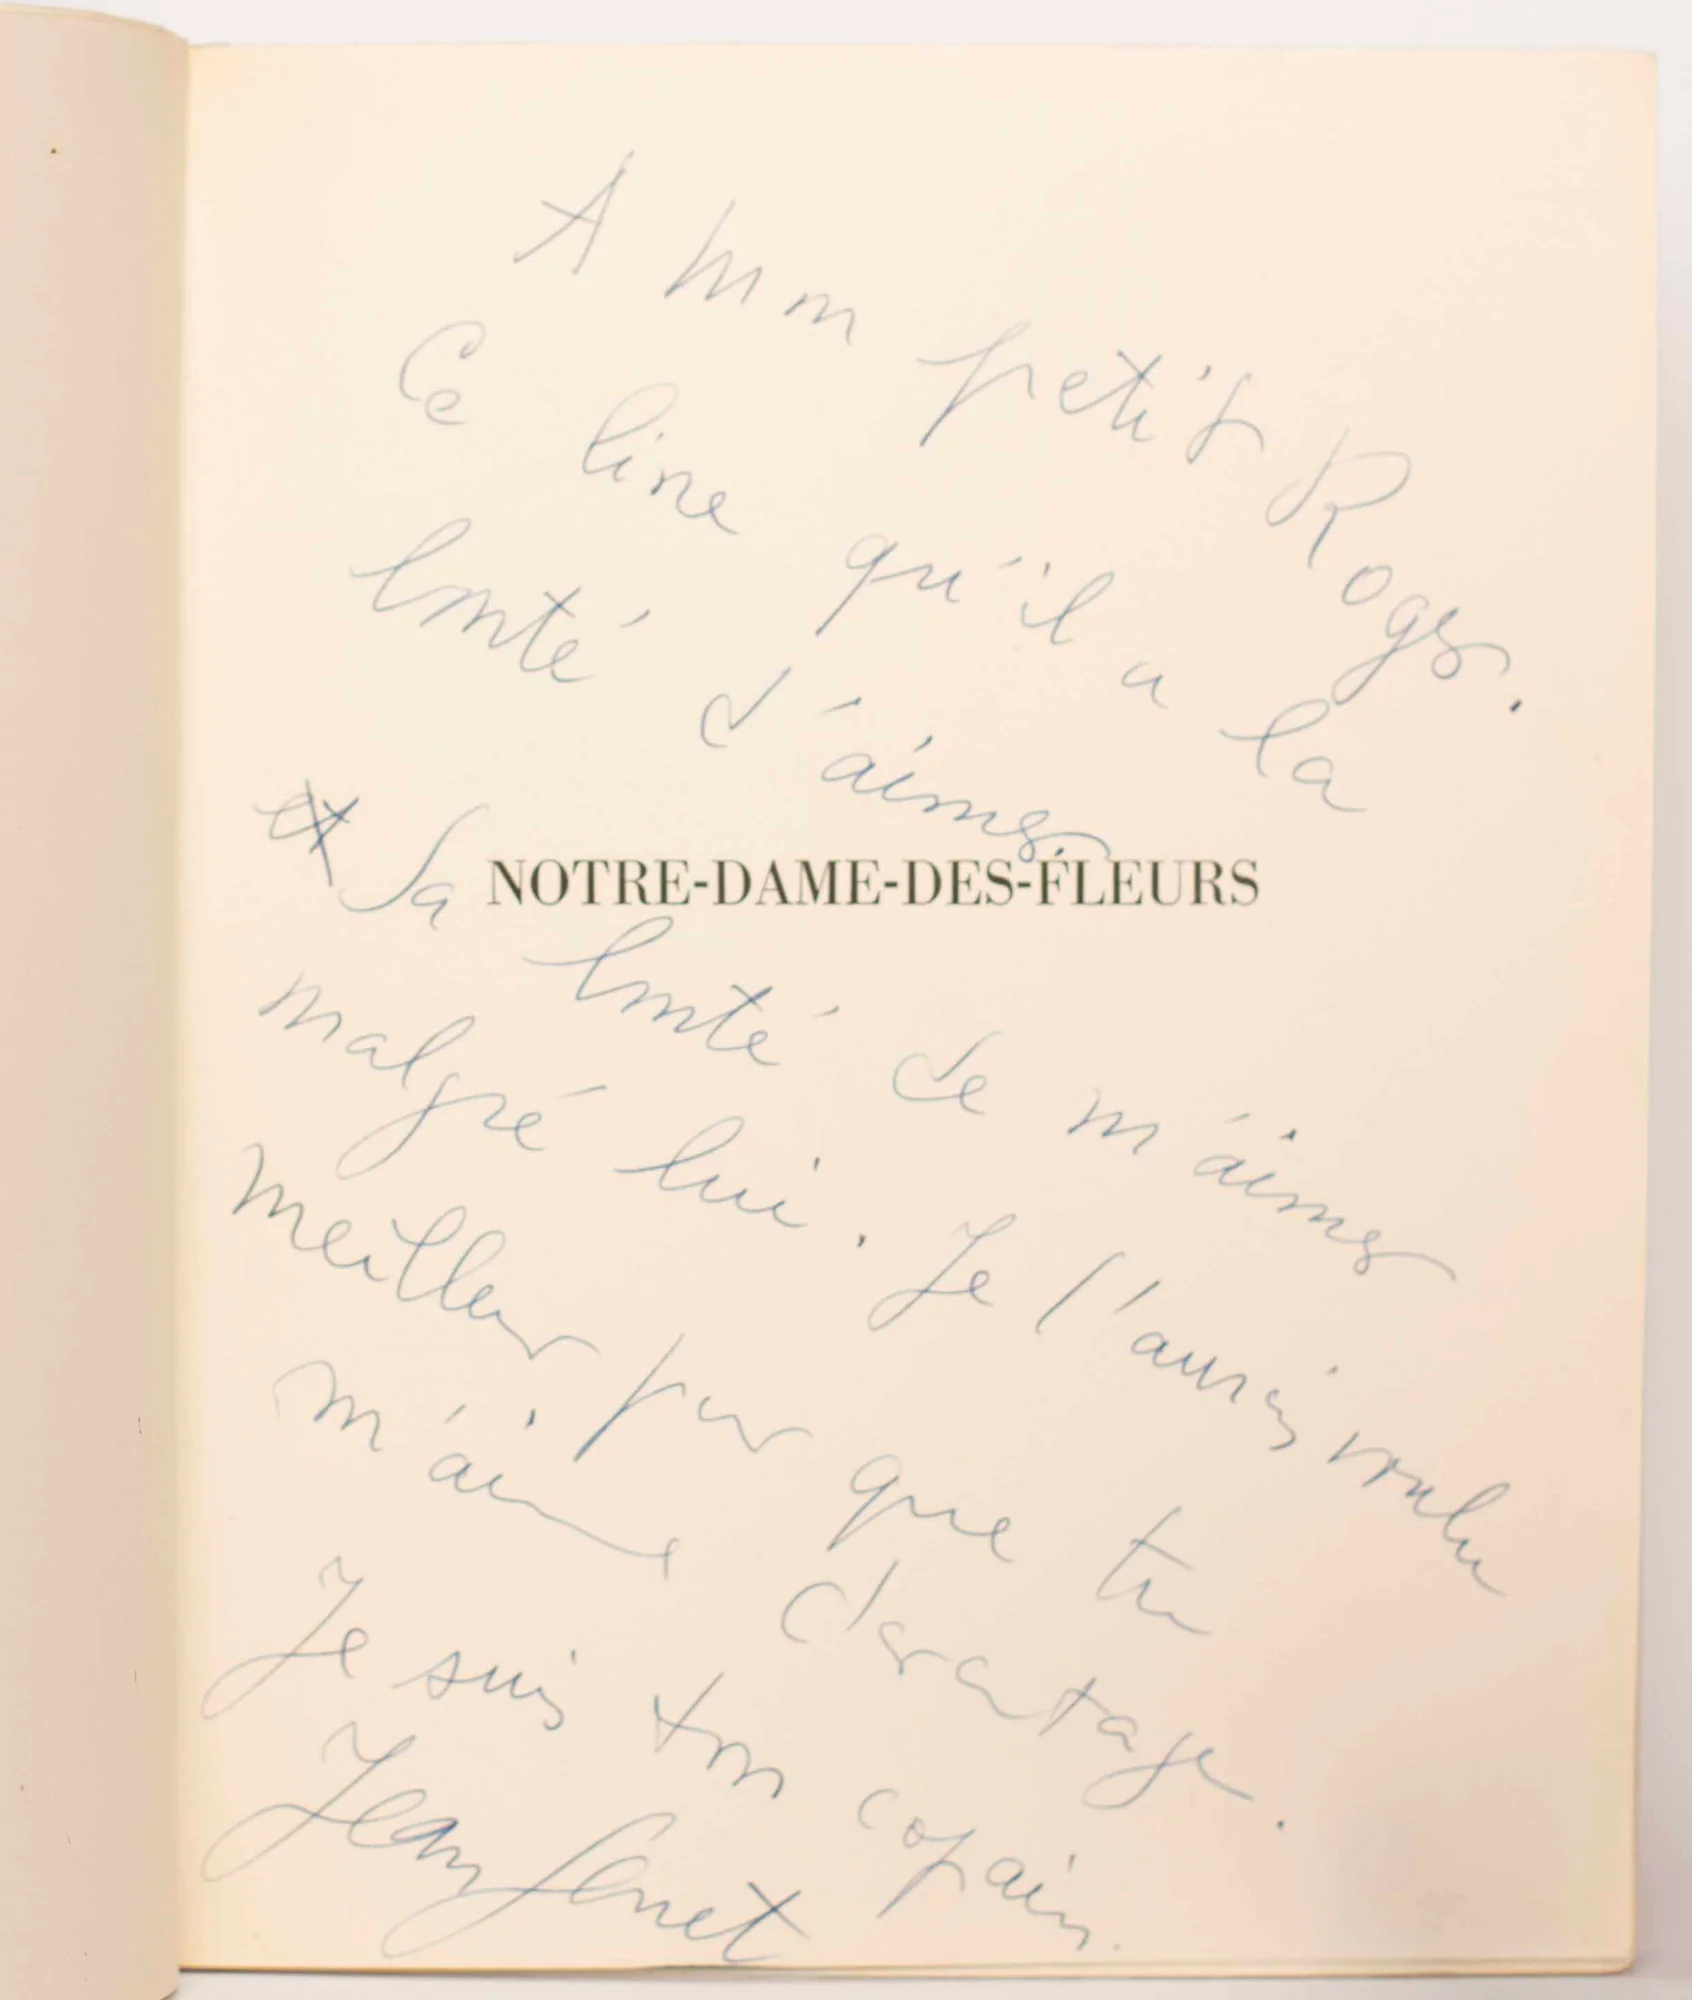 A mon petit Roger.
Ce livre qu'il a la
bonté d'aimer
et sa
NOTRE-DAME-DES-FLEURS
bonté de m'aimer
malgré lui. Je l'aurais voulu
meilleur pour que tu
m'aimes davantage.
Je suis ton copain.
Jean Genet